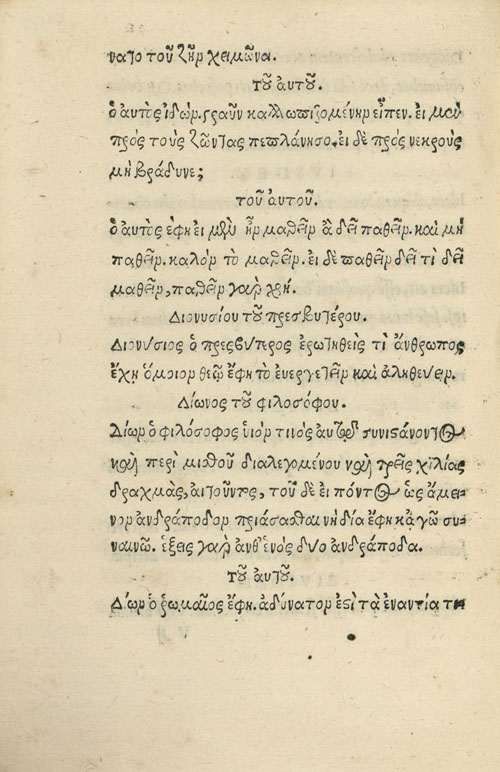 ναιο τοῦ ζῆν χειμῶνα.
τοῦ ἀυτοῦ.
ὁ ἀυτὸς ἰδὼν γραῦν καλλωπιζομένην εἶπεν. ἐι μὲν
πρὸς τοὺς ζῶντας πεπλάνησο. ἐι δὲ πρὸς νεκροὺς
μὴ βράδυνε;
τοῦ ἀυτοῦ.
ὁ ἀυτὸς ἐφη ἐι μὲν ἦν μαθεῖν ἃ δεῖ παθεῖν. καὶ μὴ
παθεῖν. καλὸν τὸ μαθεῖν. ἐι δὲ παθεῖν δεῖ τὶ δεῖ
μαθεῖν, παθεῖν γὰρ χρή.
Διονυσίου τοῦ πρεσβυτέρου.
Διονύσιος ὁ πρεσβύτερος ἐρωτηθεὶς τὶ ἄνθρωπος
ἔχη ὅμοιον θεῷ ἔφη τὸ ἐυεργετεῖν καὶ ἀληθεύειν.
Δίωνος τοῦ φιλοσόφου.
Δίων ὁ φιλόσοφος ὑιόν τινὸς ἀυτῷ συνιστάνοντος
καὶ περὶ μισθοῦ διαλεγομένου καὶ τρεῖς χιλίας
δραχμὰς, ἀιτοῦντος, τοῦ δὲ ἐιπόντος ὡς ἄμει-
νον ἀνδράποδον πριάσασθαι νὴ δία ἔφη κἀγὼ συ-
ναινῶ. ἕξεις γὰρ ἀνθ' ἑνὸς δύο ἀνδράποδα.
τοῦ ἀυτοῦ.
Δίων ὁ ῥωμαῖος ἔφη. ἀδύνατον ἐστὶ τὰ ἐναντία τη